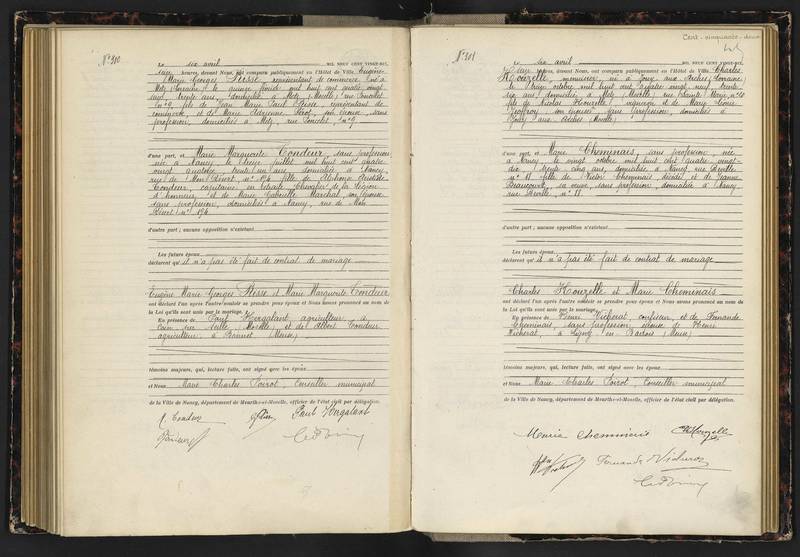 N° 300
Le six avril MIL NEUF CENT VINGT-SIX,
heures, devant Nous, ont comparu publiquement en l'Hôtel de Ville Eugène-
Marie Georges représentant de commerce né à
Metz le quinze mil huit cent quatre vingt
trente ans, domicilié à Metz (Moselle), rue
n° 9, fils de Jean Marie Paul représentant de
commerce, et de Marie son épouse, sans
profession, domiciliés à Metz, rue n° 9
d'une part, et Marie Marguerite Condeur, sans profession
née à Nancy le juillet mil huit cent quatre
vingt quatorze, trente un ans, domiciliée à Nancy,
rue de Mon Désert, n° 194 fille de
Condeur, capitaine en retraite Chevalier de la Légion
d'honneur, et de Marie Gabrielle Marchal, son épouse
sans profession, domiciliés à Nancy, rue de Mon
Désert n° 194
d'autre part ; aucune opposition n'existant
Les futurs époux
déclarent qu'il n'a pas été fait de contrat de mariage
Eugène Marie Georges et Marie Marguerite Condeur
ont déclaré l'un après l'autre vouloir se prendre pour époux et Nous avons prononcé au nom de
la Loi qu'ils sont unis par le mariage.
En présence de Paul Hergalant, agriculteur, à
sur Seille (Moselle) et de Albert Condeur
agriculteur, à (Meuse)
témoins majeurs, qui, lecture faite, ont signé avec les époux
et Nous Marie Charles Poirot, Conseiller municipal
de la Ville de Nancy, département de Meurthe-et-Moselle, officier de l'état civil par délégation.
Condeur Paul Hergalant
Cent-cinquante-deux
N° 301
Le six avril MIL NEUF CENT VINGT-SIX,
heures, devant Nous, ont comparu publiquement en l'Hôtel de Ville Charles
Houzelle, né à Jouy aux Arches (Lorraine)
le octobre mil huit cent quatre vingt neuf, trente
six ans, domicilié à Metz (Moselle) rue n° 20
fils de Nicolas Houzelle, vigneron et de Marie
son épouse, sans profession, domiciliés à
Jouy aux Arches (Moselle)
d'une part, et Marie Cheminais, sans profession née
à Nancy le vingt octobre mil huit cent quatre vingt-
dix, trente cinq ans, domiciliée à Nancy, rue
n° 11 fille de Victor Cheminais décédé et de Jeanne
Beaucourt, sa veuve, sans profession, domiciliée à Nancy
rue n° 11.
d'autre part ; aucune opposition n'existant
Les futurs époux
déclarent qu'il n'a pas été fait de contrat de mariage
Charles Houzelle et Marie Cheminais
ont déclaré l'un après l'autre vouloir se prendre pour époux et Nous avons prononcé au nom de
la Loi qu'ils sont unis par le mariage.
En présence de Henri coiffeur, et de Fernande
Cheminais, sans profession, épouse de Henri
à Ligny en Barrois (Meuse)
témoins majeurs, qui, lecture faite, ont signé avec les époux
et Nous Marie Charles Poirot, Conseiller municipal
de la Ville de Nancy, département de Meurthe-et-Moselle, officier de l'état civil par délégation.
Cheminais Houzelle
Fernande